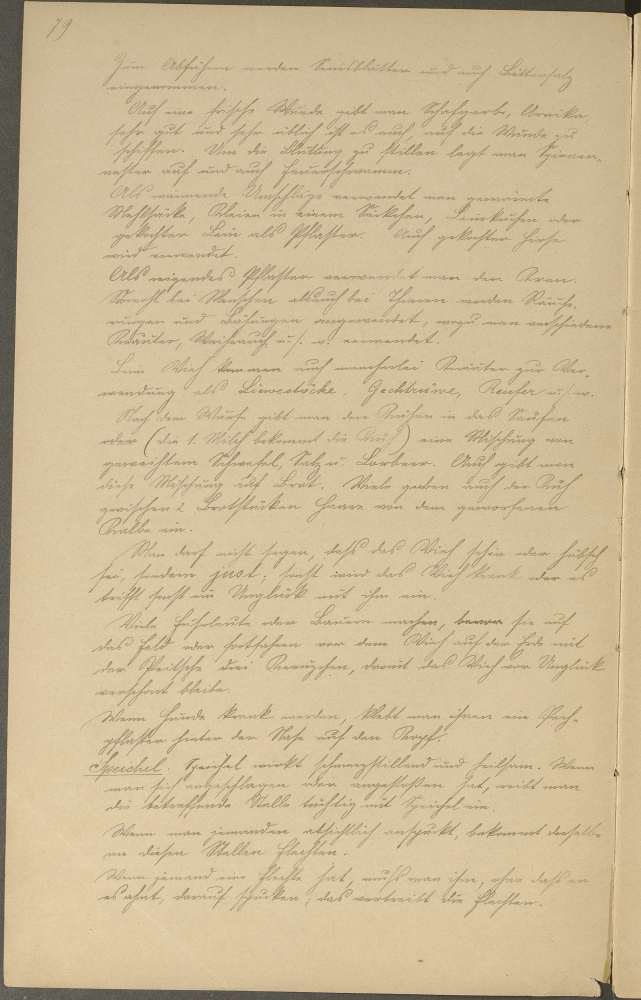 79
Zum Abführen werden Senisblätter und auch Bittersalz
eingenommen.
Auf eine frische Wunde gibt man Schafgarbe, Arnika,
sehr gut und sehr üblich ist es auch, auf die Wunde zu
schiffen. Um die Blutung zu stillen legt man Spinnen-
nester auf und auch Feuerschwamm.
Als wärmende Umschläge verwendet man gewärmte
Mehlsäcke, Kleien in einem Säckchen, Leinkuchen oder
gekochter Lein als Pflaster. Auch gekochter Hirse
wird verwendet.
Als reizendes Pflaster verwendet man den Kren.
Sowohl bei Menschen als auch bei Thieren werden Räuche-
rungen und Bähungen angewendet, wozu man verschiedene
Kräuter, Weihrauch u. s. w. verwendet.
Beim Vieh kommen auch mancherlei Kräuter zur Ver-
wendung als Liewestöcke, Gechbrüwe, Raufer u. s. w.
Nach dem Wurfe gibt man den Kühen in das Saufen
oder (die 1. Milch bekommt die Kuh) eine Mischung von
geweihtem Schwefel, Salz u. Lorbeer. Auch gibt man
diese Mischung auf Brot. Viele geben auch der Kuh
zwischen 2 Brotstücken Haare von dem geworfenen
Kalbe ein.
Man darf nicht sagen, dass das Vieh schön oder hübsch
sei, sondern just; sonst wird das Vieh krank oder es
trifft sonst ein Unglück mit ihm ein.
Viele Fuhrleute oder Bauern machen, bevor sie auf
das Feld oder fortfahren vor dem Vieh auf der Erde mit
der Peitsche drei Kreuzchen, damit das Vieh vor Unglück
verschont bleibe.
Wenn Hunde krank werden, klebt man ihnen ein Pech-
pflaster hinter der Nase auf den Kopf.
Speichel. Speichel wirkt schmerzstillend und heilsam. Wenn
man sich angeschlagen oder angestoßen hat, reibt man
die betreffende Stelle tüchtig mit Speichel ein.
Wenn man jemanden absichtlich anspuckt, bekommt derselbe
an diesen Stellen Flechten.
Wenn jemand eine Flechte hat, muss man ihm, ohne dass er
es ahnt, darauf spucken, das vertreibt die Flechten.